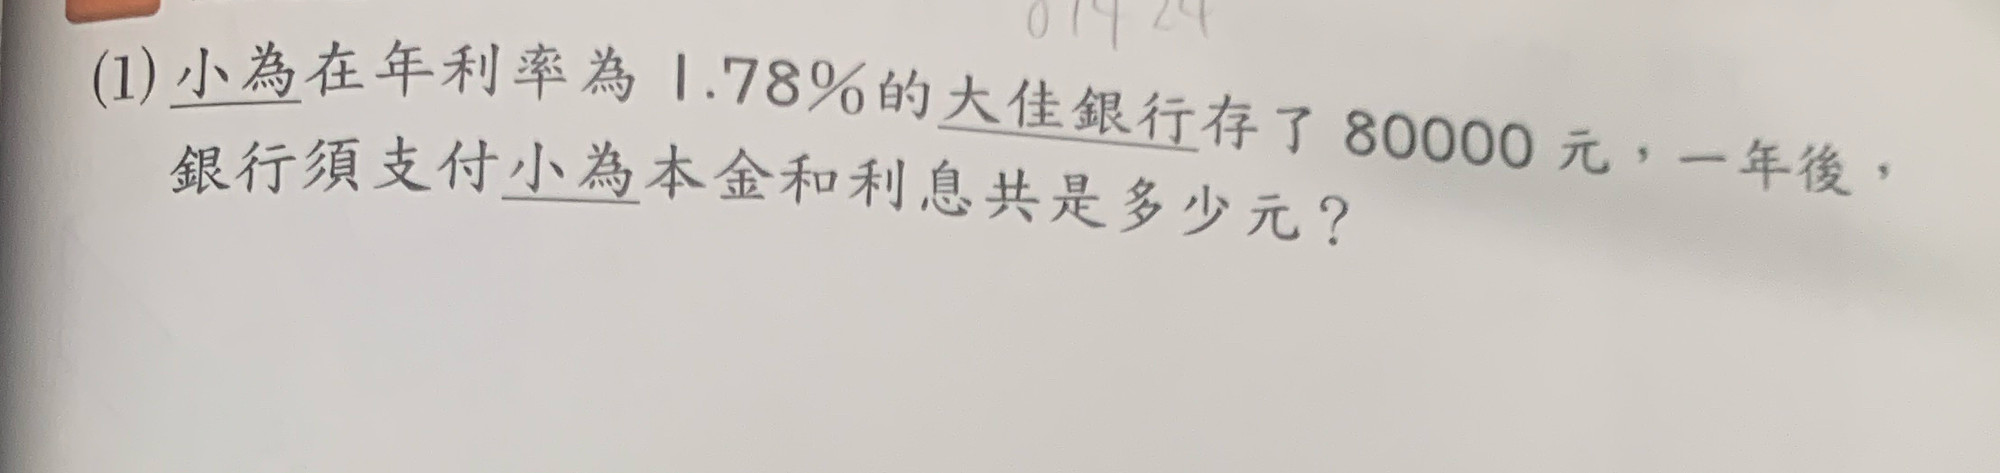 (1) 小為在年利率為 1.78%的大佳銀行存了 80000 元，一年後，
銀行須支付小為本金和利息共是多少元？